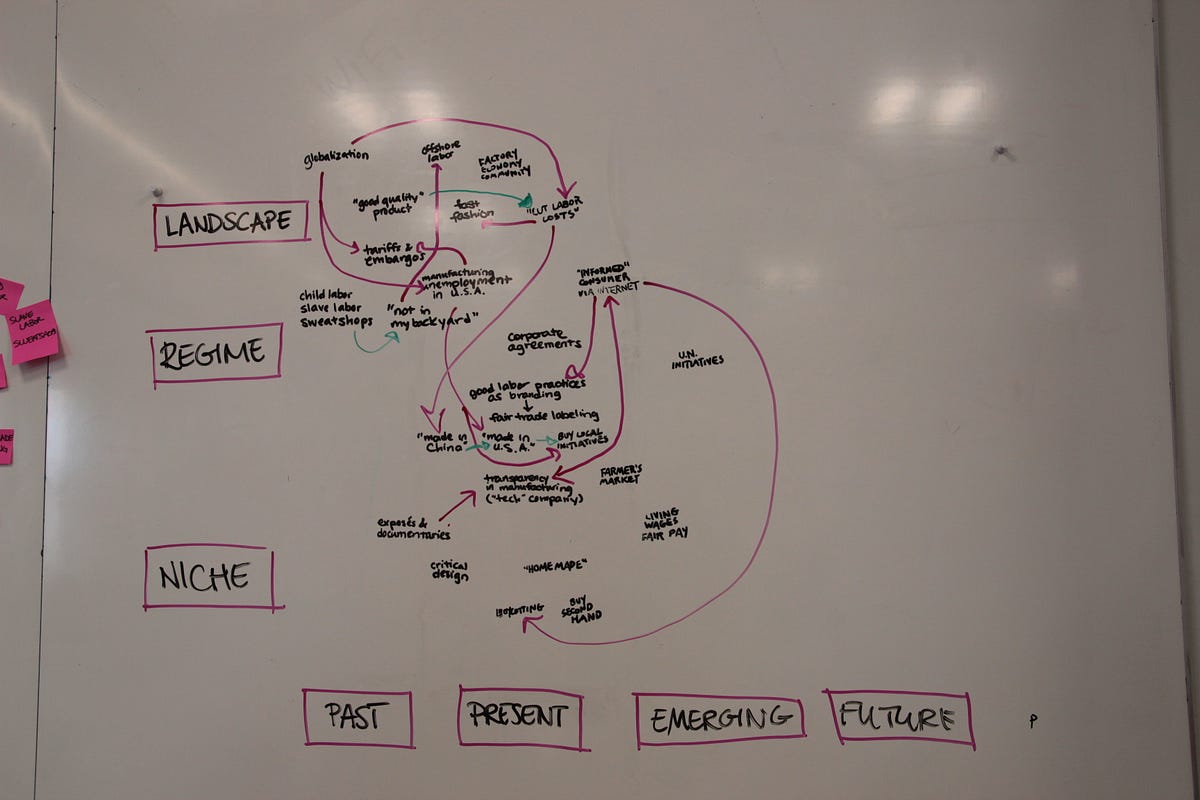 globalization
OFFSHORE
LABOR
FACTORY
ECONOMY
COMMUNITY
"good quality"
product
fast
fashion
"CUT LABOR
COSTS"
LANDSCAPE
tariffs &
embargos
manufacturing
unemployment
in U.S.A.
"INFORMED"
CONSUMER
VIA INTERNET
child labor
slave labor
sweatshops
"not in
my backyard"
SLAVE
LABOR
SWEATSHOPS
REGIME
corporate
agreements
U.N.
INITIATIVES
good labor practices
as branding
fair trade labeling
"made in
China"
"made in
U.S.A."
BUY LOCAL
INITIATIVES
transparency
in manufacturing
("tech" company)
FARMER'S
MARKET
exposés &
documentaries
LIVING
WAGES
FAIR PAY
NICHE
critical
design
"HOMEMADE"
BOYCOTTING
BUY
SECOND
HAND
PAST
PRESENT
EMERGING
FUTURE
P